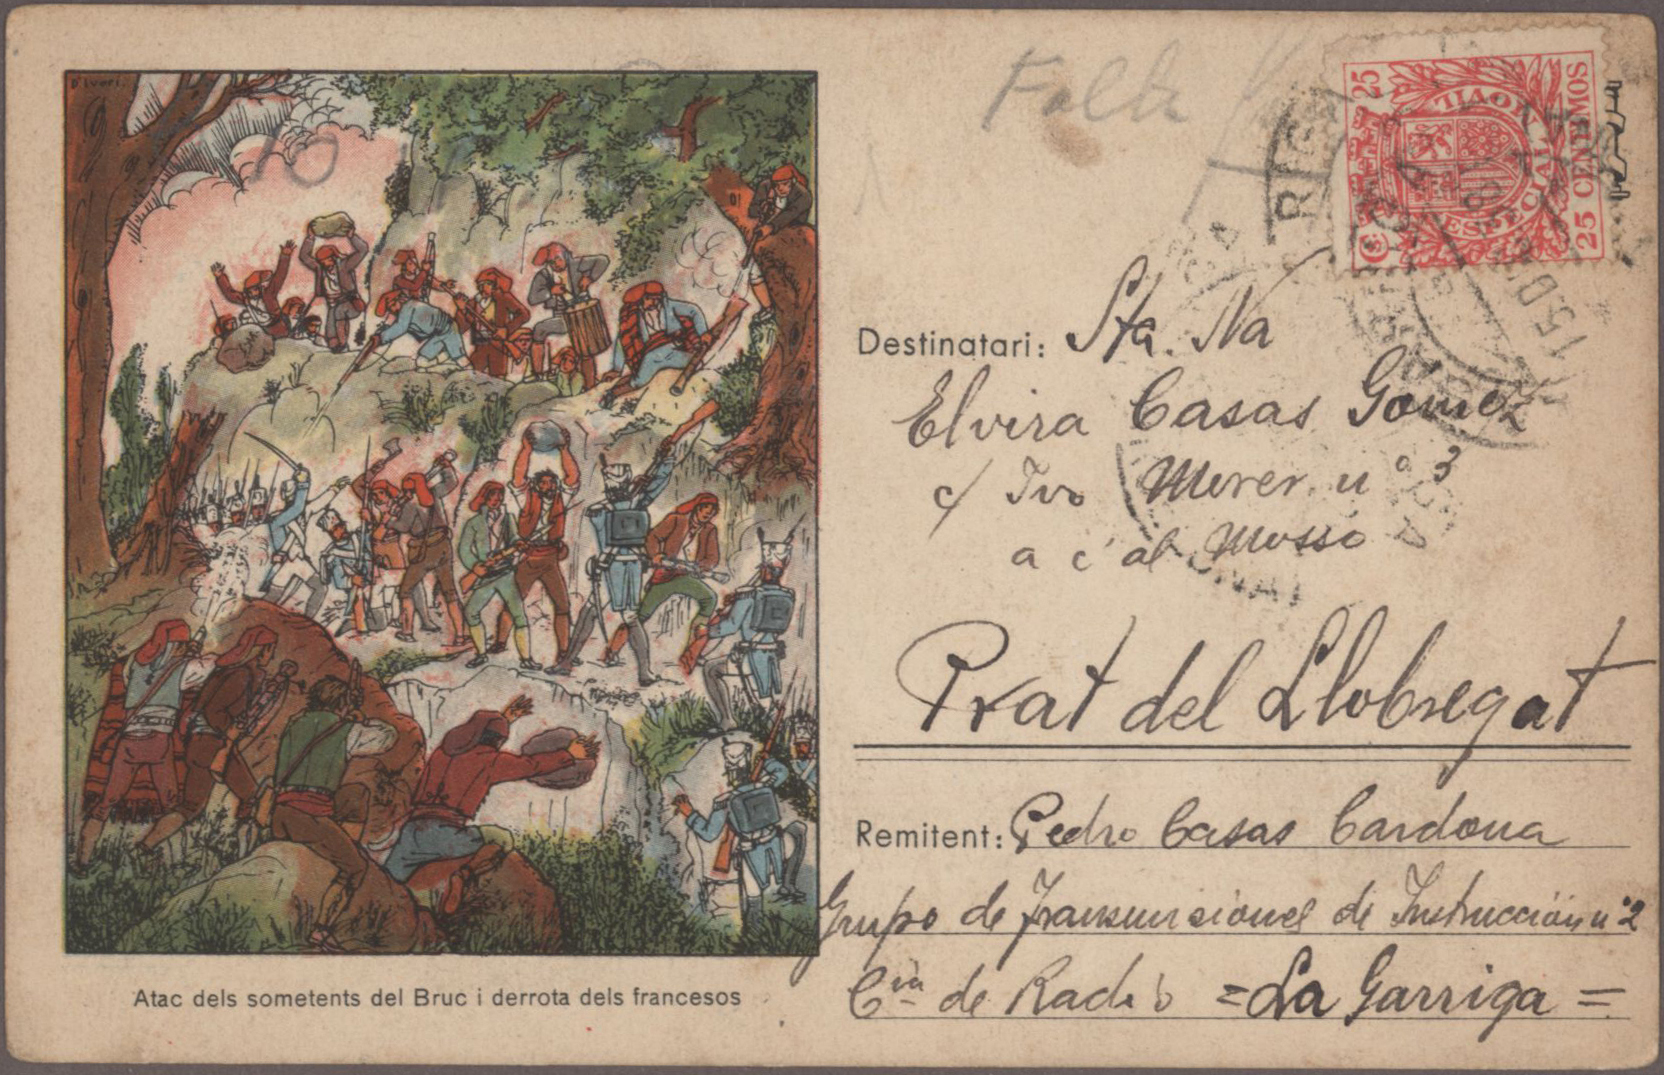 D'Ivori.
Atac dels sometents del Bruc i derrota dels francesos
Falta
25 CENTIMOS
ESPECIAL MOVIL
25 Cs
15.DIC
LA GARRIGA
Destinatari: Sta. Na
Elvira Casas Gomez
c/ Ivo Merer nº 3
a c'al Mosso
Prat del Llobregat
Remitent: Pedro Casas Cardona
Grupo de Transmisiones de Instrucción nº 2
Cia de Radio =La Garriga=